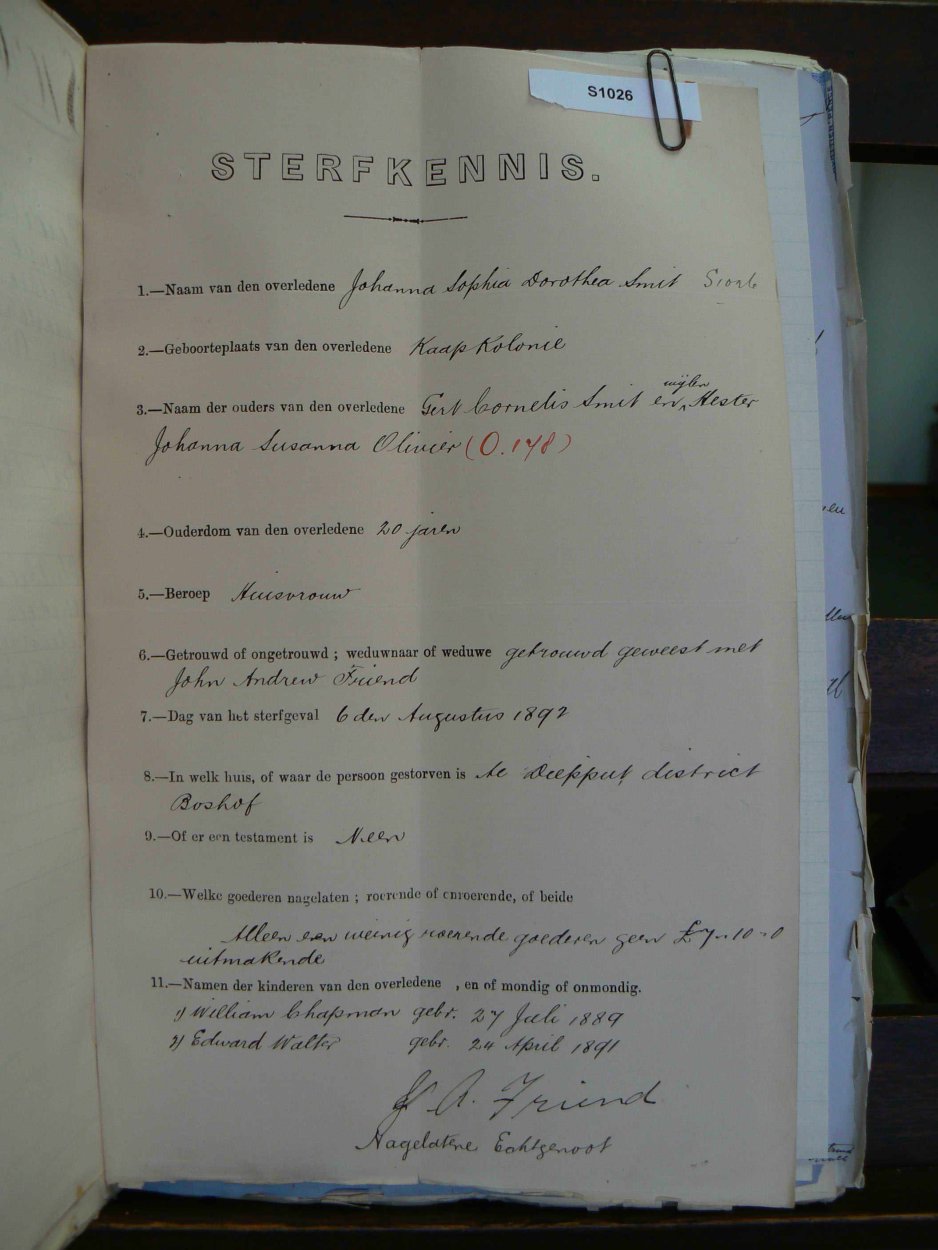 S1026
STERFKENNIS.
1.—Naam van den overledene Johanna Sophia Dorothea Smit S1026
2.—Geboorteplaats van den overledene Kaap Kolonie
wijlen
3.—Naam der ouders van den overledene Gert Cornelis Smit en Hester
Johanna Susanna Olivier (O.178)
4.—Ouderdom van den overledene 20 jaren
5.—Beroep Huisvrouw
6.—Getrouwd of ongetrouwd ; weduwnaar of weduwe getrouwd geweest met
John Andrew Friend
7.—Dag van het sterfgeval 6 den Augustus 1892
8.—In welk huis, of waar de persoon gestorven is te Diepput district
Boshof
9.—Of er een testament is Neen
10.—Welke goederen nagelaten ; roerende of onroerende, of beide
Alleen een weinig roerende goederen geen £7-10-0
uitmakende
11.—Namen der kinderen van den overledene , en of mondig of onmondig.
1) William Chapman gebr. 27 Juli 1889
2) Edward Walter gebr. April 1891
J. A. Friend
Nagelatene Echtgenoot